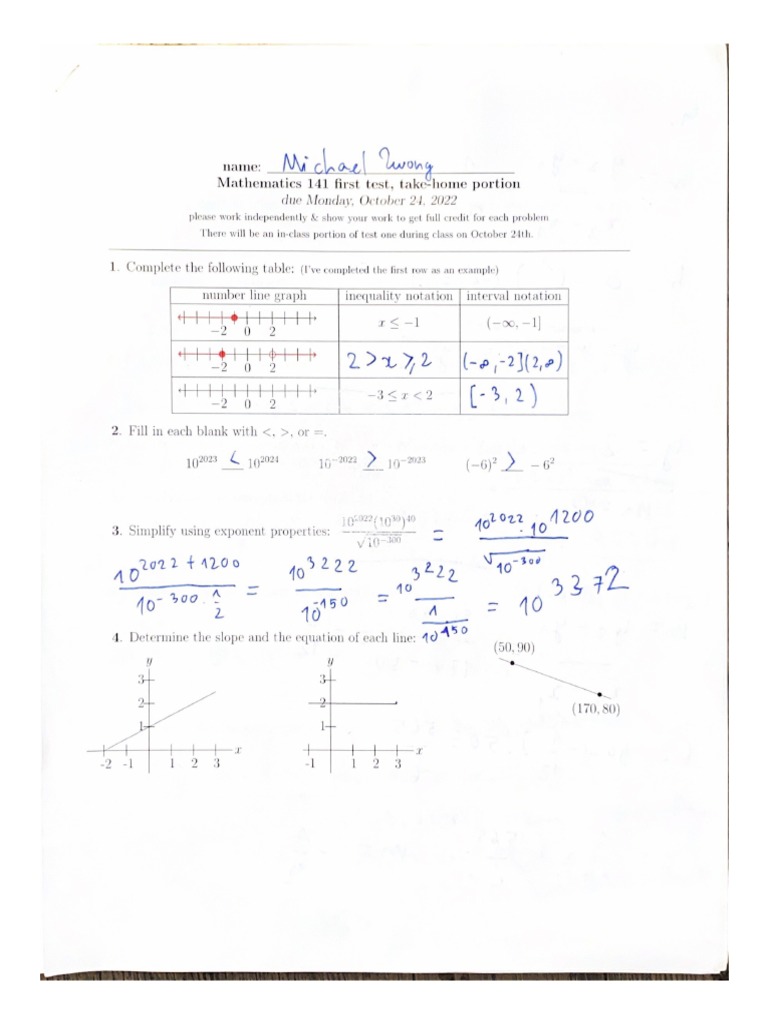 name: Michael Zwong
Mathematics 141 first test, take-home portion
due Monday, October 24, 2022
please work independently & show your work to get full credit for each problem
There will be an in-class portion of test one during class on October 24th.
1. Complete the following table: (I've completed the first row as an example)
number line graph inequality notation interval notation
-2 0 2 x ≤ -1 (-∞, -1]
-2 0 2 2 > x ⩾ 2 (-∞, -2](2, ∞)
-2 0 2 -3 ≤ x < 2 [-3, 2)
2. Fill in each blank with <, >, or =.
10^2023 < 10^2024 10^-2022 > 10^-2023 (-6)^2 > -6^2
3. Simplify using exponent properties: 10^2022(10^30)^40 / √10^-300 = 10^2022 · 10^1200 / √10^-300
10^2022+1200 / 10^-300·1/2 = 10^3222 / 10^-150 = 10^3222 / 1/10^150 = 10^3372
4. Determine the slope and the equation of each line:
(50, 90)
y y
3 3
2 2
(170, 80)
1 1
x x
-2 -1 1 2 3 -1 1 2 3